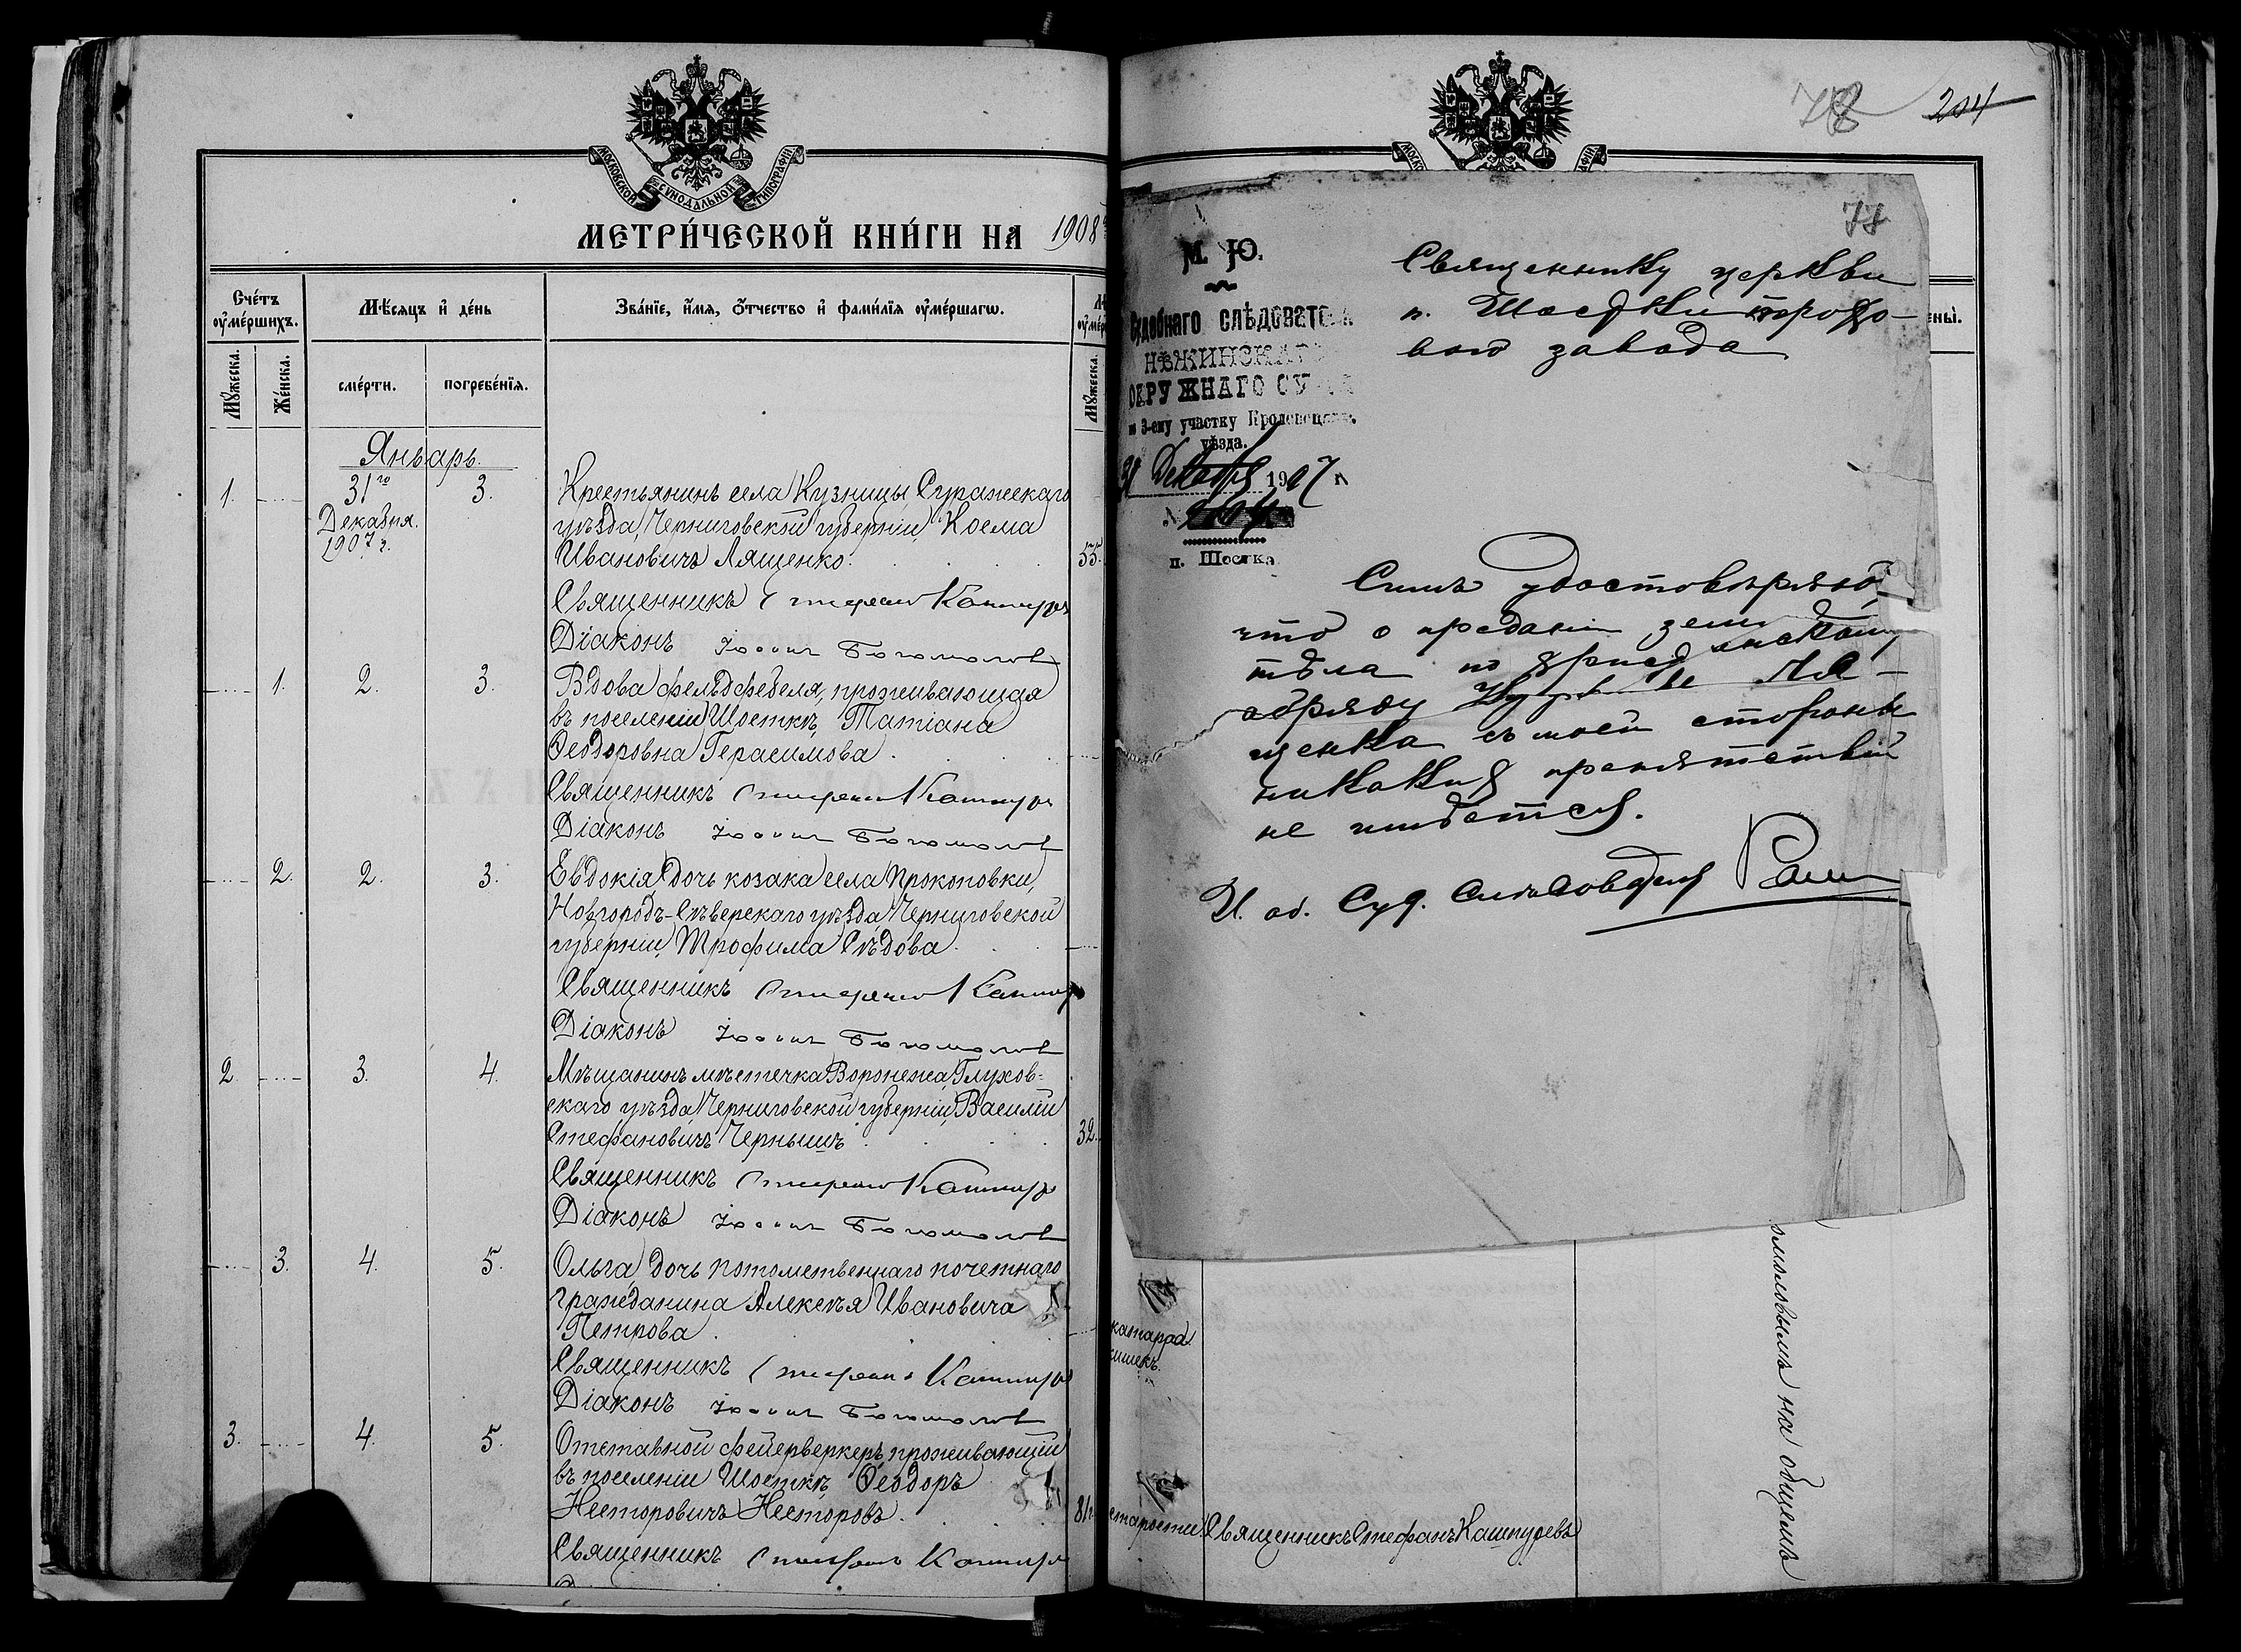 МОСКОВСКОЙ СѴНОДАЛЬНОЙ ТИПОГРАФІИ
МЕТРИ́ЧЕСКОЙ КНИ́ГИ НА 1908
Сче́тъ ᲂу҆ме́ршихъ.
Мѣ́сяцъ и҆ де́нь
Зва́нїе, и҆́мя, ѻ҆́тчество и҆ фами́лїя ᲂу҆ме́ршагѡ.
Мꙋ́жеска.
Же́нска.
сме́рти.
погребе́нїя.
Мꙋ́жеска.
Январь.
1. 31го Декабря. 1907 г. 3.
Крестьянинъ села Кузницы, Суражскаго
уѣзда, Черниговской губерніи, Косма
Ивановичъ Лященко. 55.
Священникъ
Діаконъ Богомолов
1. 2. 3.
Вдова фельдфебеля, проживающая
въ поселеніи Шосткѣ, Татіана
Ѳеодоровна Герасимова.
Священникъ
Діаконъ Богомолов
2. 2. 3.
Евдокія, дочь козака села Прокоповки,
Новгородъ-Сѣверскаго уѣзда, Черниговской
губерніи, Трофима Сѣдова.
Священникъ
Діаконъ Богомолов
2 3. 4.
Мѣщанинъ мѣстечка Воронежа, Глухов-
скаго уѣзда, Черниговской губерніи, Василій
Стефановичъ Чернышъ. 32.
Священникъ
Діаконъ Богомолов
3. 4. 5.
Ольга, дочь потомственнаго почетнаго
гражданина Алексѣя Ивановича
Петрова.
Священникъ
Діаконъ Богомолов
3. 4. 5.
Отставной фейерверкеръ, проживающій
въ поселеніи Шосткѣ, Ѳеодоръ
Несторовичъ Несторовъ. 81
Священникъ
78 204
77
М. Ю.
Судебнаго слѣдователя
НѢЖИНСКАГО
ОКРУЖНАГО СУДА
по 3-ему участку Кролевецкаго
уѣзда.
31 Декабря 1907 г.
№
п. Шостка
Священнику церкви
п. Шостки порохо-
вого завода
Симъ удостовѣряю,
что о преданіи земли
тѣла по христіанскому
обряду Кузьмы Ля-
щенка съ моей стороны
никакихъ препятствій
не имѣется.
И. об. Суд. Слѣдователя
катарра
кишекъ.
старости
Священникъ Стефанъ Кашпуревъ
на общемъ